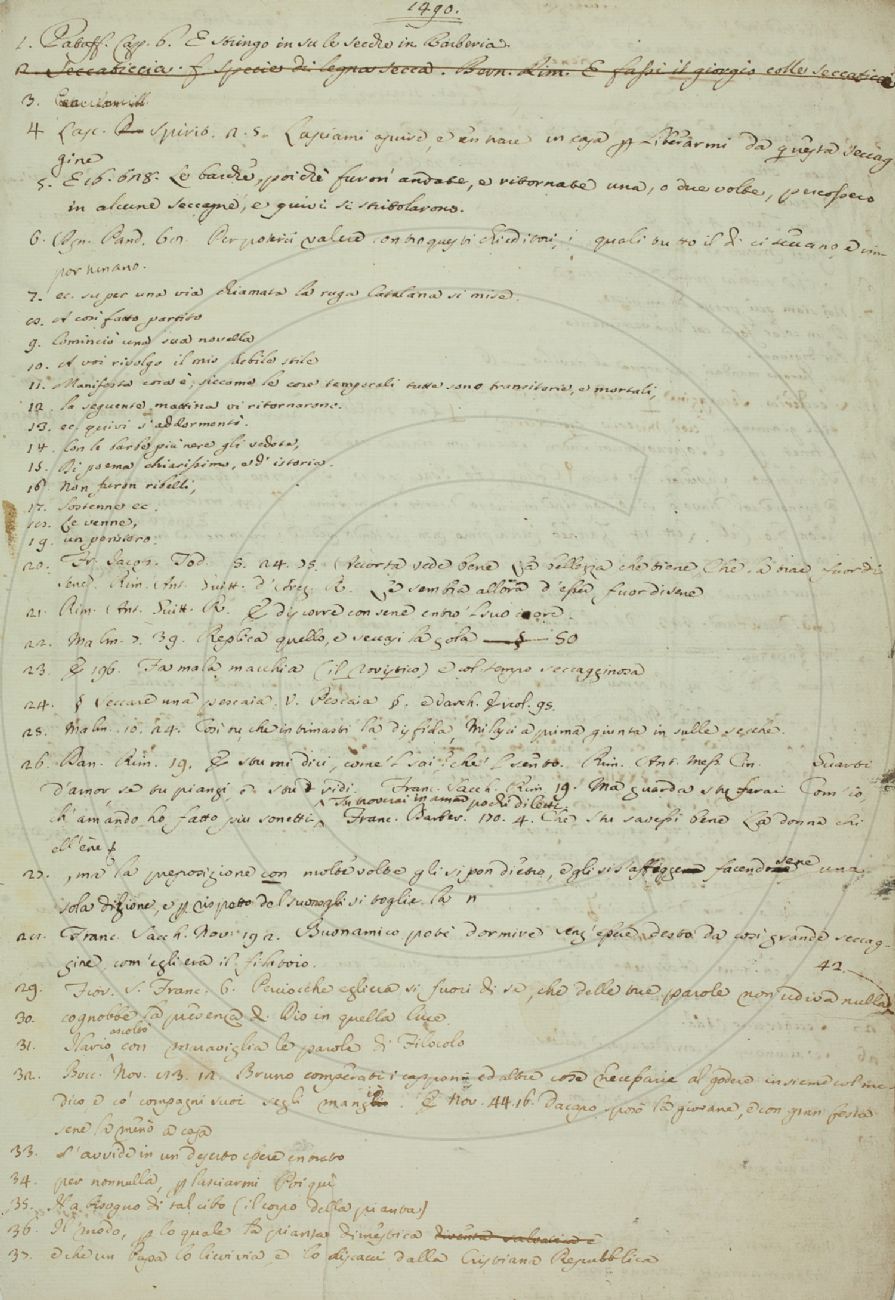 1490.
1. Pataff. Cap. 6. E stringo in su le secche in Barberia.
2. Seccaticcia. f spezie di legna secca. Bern. Rim. E fassi il giorgio colle seccaticce
3.
4 Lasc. Spirit. 2. 5. Lasciami aprire, e entrare in casa p liberarmi da questa seccag
gine
5. E le barche, poichè furon andate, e ritornate una, o due volte, percossero
in alcune seccagne, e quivi si stritolarono.
6. Agn. Pand. Per potersi valere contro questi chieditori, i quali tutto il dì ci seccano, e im-
portunano.
7. ec. su per una via chiamata la ruga Catalana si mise.
8. A così fatto partito
9. Cominciò una sua novella
10. A voi rivolgo il mio debile stile
11. Manifesta cosa è, siccome le cose temporali tutte sono transitorie, e mortali,
12. la seguente mattina vi ritornarono.
13. ec. quivi s'addormentò.
14. Con le barbe più nere gli vedete,
15. Di poema chiarissimo, e d'istoria.
16 Non furon ribelli,
17. Sostenne ec.
18. Le venne,
19. un pensiero.
20. Fr. Jacop. Tod. 5. 24. 35. Accorta vede bene La bellezza che tiene Che la trae fuor di
sene. Rim. Ant. Guitt. d'Arez. R. E sembra allora d'esser fuor di sene
21. Rim. Ant. Guitt. R. E discorre con sene entro 'l suo core.
22. Malm. 7. 39. Replica quello, e seccasi la gola 50
23. E 196. Fa mala macchia (il Rovistico) e col tempo seccagginosa
24. § Seccare una pescaia. V. Pescaia §. e Varch. Ercol. 95.
25. Malm. 10. 24. Così tu, che intimasti la disfida, Mi lasci a prima giunta in sulle secche.
26. Dan. Rim. 19. E stu mi dici, come 'l sai? che 'l sento. Rim. Ant. Mess. Cin. Guardi
d'amor se tu piangi, e stu vidi. Franc. Sacch. Rim 19. Ma guarda stu farai Com'io,
Tu troverai in amar pochi diletti
ch'amando ho fatto più sonetti. Franc. Barber. 170. 4. Che stu sapessi bene La donna chi
ell'ène
27. , ma la preposizione con molte volte gli si pon dietro, e gli si affigge facendosene una
sola dizione, e p rispetto del suono gli si toglie la n
28. Franc. Sacch. Nov. 192. Buonamico potè dormire senz'essere desto da così grande seccag-
gine com'egli era il filatoio.
42
29. Fior. S. Franc. 6. Perciocchè egli era sì fuori di se, che delle tue parole non udiva nulla
30. cognobbe la presenza di Dio in quella luce
ascoltò
31. Ilario con maraviglia le parole di Filocolo
32. Bocc. Nov. 73. 12. Bruno comperati i capponi ed altre cose necessarie al godere insieme col me-
dico e co' compagni suoi segli mangiò. E Nov. 44. 16. Dacapo sposò la giovane, e con gran festa
sene la menò a casa
33. S'avvide in un deserto essere entrato
34. per nonnulla, p lasciarmi Poi quì
35. Ha bisogno di tal cibo (il corpo della pianta)
36. Il modo, p lo quale la pianta dimestica diventa salvatica è
37. e che un Papa lo licenzia e lo discacci dalla Cristiana Repubblica